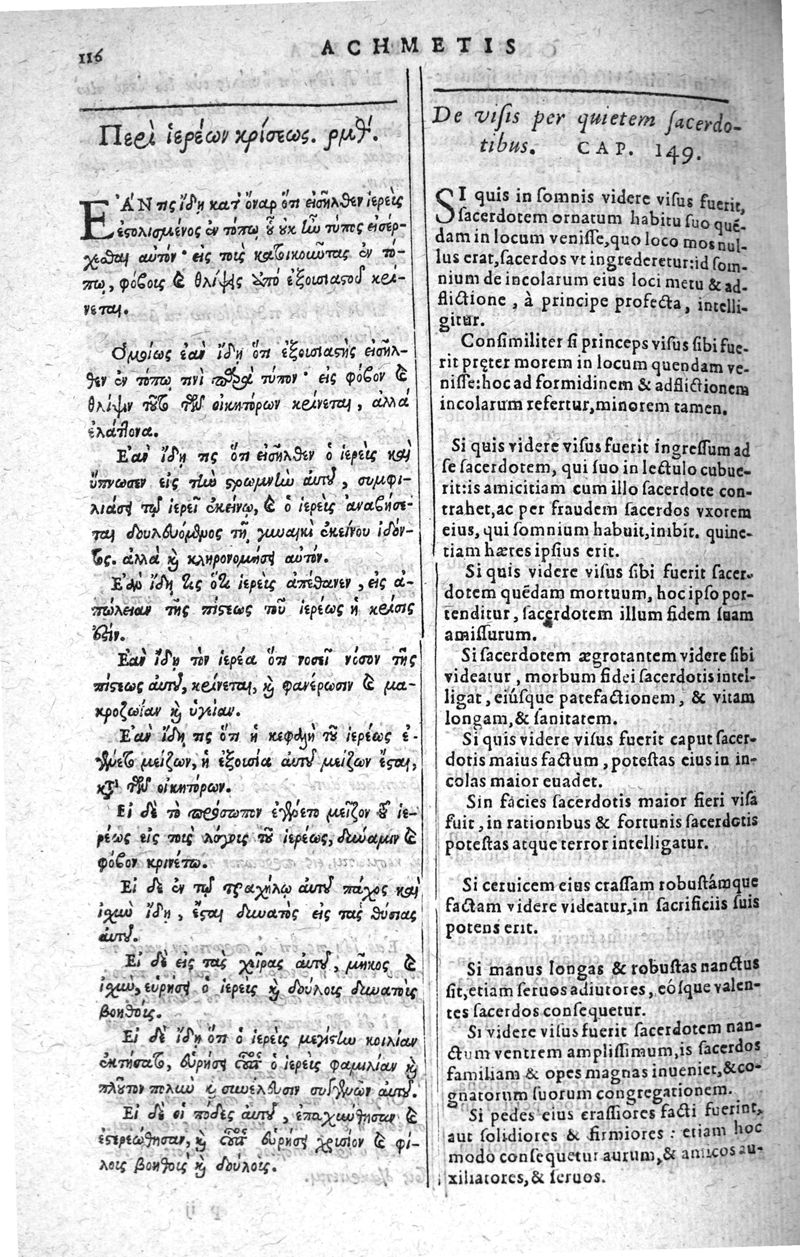 116
ACHMETIS
Περὶ ἱερέων κρίσεως. ρμθʹ.
ΕΑΝ τις ἴδῃ κατ' ὄναρ ὅτι εἰσῆλθεν ἱερεὺς
ἐστολισμένος ἐν τόπῳ οὗ οὐκ ἦν τύπος εἰσέρ-
χεσθαι αὐτόν· εἰς τοὺς κατοικοῦντας ἐν τό-
πῳ, φόβοις καὶ θλίψις ὑπὸ ἐξουσιαστοῦ κρί-
νεται.
Ὁμοίως ἐὰν ἴδῃ ὅτι ἐξουσιαστὴς εἰσῆλ-
θεν ἐν τόπῳ τινὶ παρὰ τύπον· εἰς φόβον καὶ
θλίψιν τοῦτο τῶν οἰκητόρων κρίνεται, ἀλλὰ
ἐλάττονα.
Ἐὰν ἴδῃ τις ὅτι εἰσῆλθεν ὁ ἱερεὺς καὶ
ὕπνωσεν εἰς τὴν στρωμνὴν αὐτοῦ, συμφι-
λιάσει τῷ ἱερεῖ ἐκείνῳ, καὶ ὁ ἱερεὺς ἀναβήσε-
ται δουλευόμενος τῇ γυναικὶ ἐκείνου ἰδόν-
τος. ἀλλὰ καὶ κληρονομήσει αὐτόν.
Ἐὰν ἴδῃ τις ὅτι ἱερεὺς ἀπέθανεν, εἰς ἀ-
πώλειαν τῆς πίστεως τοῦ ἱερέως ἡ κρίσις
ἐστίν.
Ἐὰν ἴδῃ τὸν ἱερέα ὅτι νοσεῖ νόσον τῆς
πίστεως αὐτοῦ, κρίνεται, καὶ φανέρωσιν καὶ μα-
κροζωίαν καὶ ὑγείαν.
Ἐὰν ἴδῃ τις ὅτι ἡ κεφαλὴ τοῦ ἱερέως ἐ-
γένετο μείζων, ἡ ἐξουσία αὐτοῦ μείζων ἔσται,
κατὰ τῶν οἰκητόρων.
Εἰ δὲ τὸ πρόσωπον ἐγένετο μεῖζον τοῦ ἱε-
ρέως εἰς τοὺς λόγους τοῦ ἱερέως, δύναμιν καὶ
φόβον κρινέτω.
Εἰ δὲ ἐν τῷ τραχήλῳ αὐτοῦ πάχος καὶ
ἰσχὺν ἴδῃ, ἔσται δυνατὸς εἰς τὰς θυσίας
αὐτοῦ.
Εἰ δὲ εἰς τὰς χεῖρας αὐτοῦ, μῆκος καὶ
ἰσχὺν, εὑρήσει ὁ ἱερεὺς καὶ δούλοις δυνατοὺς
βοηθούς.
Εἰ δὲ ἴδῃ ὅτι ὁ ἱερεὺς μεγίστην κοιλίαν
ἐκτήσατο, εὑρήσει οὗτος ὁ ἱερεὺς φαμιλίαν καὶ
πλοῦτον πολὺν καὶ συνέλευσιν συγγενῶν αὐτοῦ.
Εἰ δὲ οἱ πόδες αὐτοῦ, ἐπαχύνθησαν καὶ
ἐστερεώθησαν, καὶ οὗτος εὑρήσει χρυσίον καὶ φί-
λους βοηθοὺς καὶ δούλους.
De visis per quietem sacerdo-
tibus. CAP. 149.
SI quis in somnis videre visus fuerit,
sacerdotem ornatum habitu suo quē-
dam in locum venisse, quo loco mos nul-
lus erat, sacerdos vt ingrederetur: id som-
nium de incolarum eius loci metu & ad-
flictione, à principe profecta, intelli-
gitur.
Consimiliter si princeps visus sibi fue-
rit pręter morem in locum quendam ve-
nisse: hoc ad formidinem & adflictionem
incolarum refertur, minorem tamen.
Si quis videre visus fuerit ingressum ad
se sacerdotem, qui suo in lectulo cubue-
rit: is amicitiam cum illo sacerdote con-
trahet, ac per fraudem sacerdos vxorem
eius, qui somnium habuit, inibit. quine-
tiam hæres ipsius erit.
Si quis videre visus sibi fuerit sacer-
dotem quēdam mortuum, hoc ipso por-
tenditur, sacerdotem illum fidem suam
amissurum.
Si sacerdotem ægrotantem videre sibi
videatur, morbum fidei sacerdotis intel-
ligat, eiúsque patefactionem, & vitam
longam, & sanitatem.
Si quis videre visus fuerit caput sacer-
dotis maius factum, potestas eius in in-
colas maior euadet.
Sin facies sacerdotis maior fieri visa
fuit, in rationibus & fortunis sacerdotis
potestas atque terror intelligatur.
Si ceruicem eius crassam robustámque
factam videre videatur, in sacrificiis suis
potens erit.
Si manus longas & robustas nanctus
sit, etiam seruos adiutores, eósque valen-
tes sacerdos consequetur.
Si videre visus fuerit sacerdotem nan-
ctum ventrem amplissimum, is sacerdos
familiam & opes magnas inueniet, & co-
gnatorum suorum congregationem.
Si pedes eius crassiores facti fuerint,
aut solidiores & firmiores: etiam hoc
modo consequetur aurum, & amicos au-
xiliatores, & seruos.